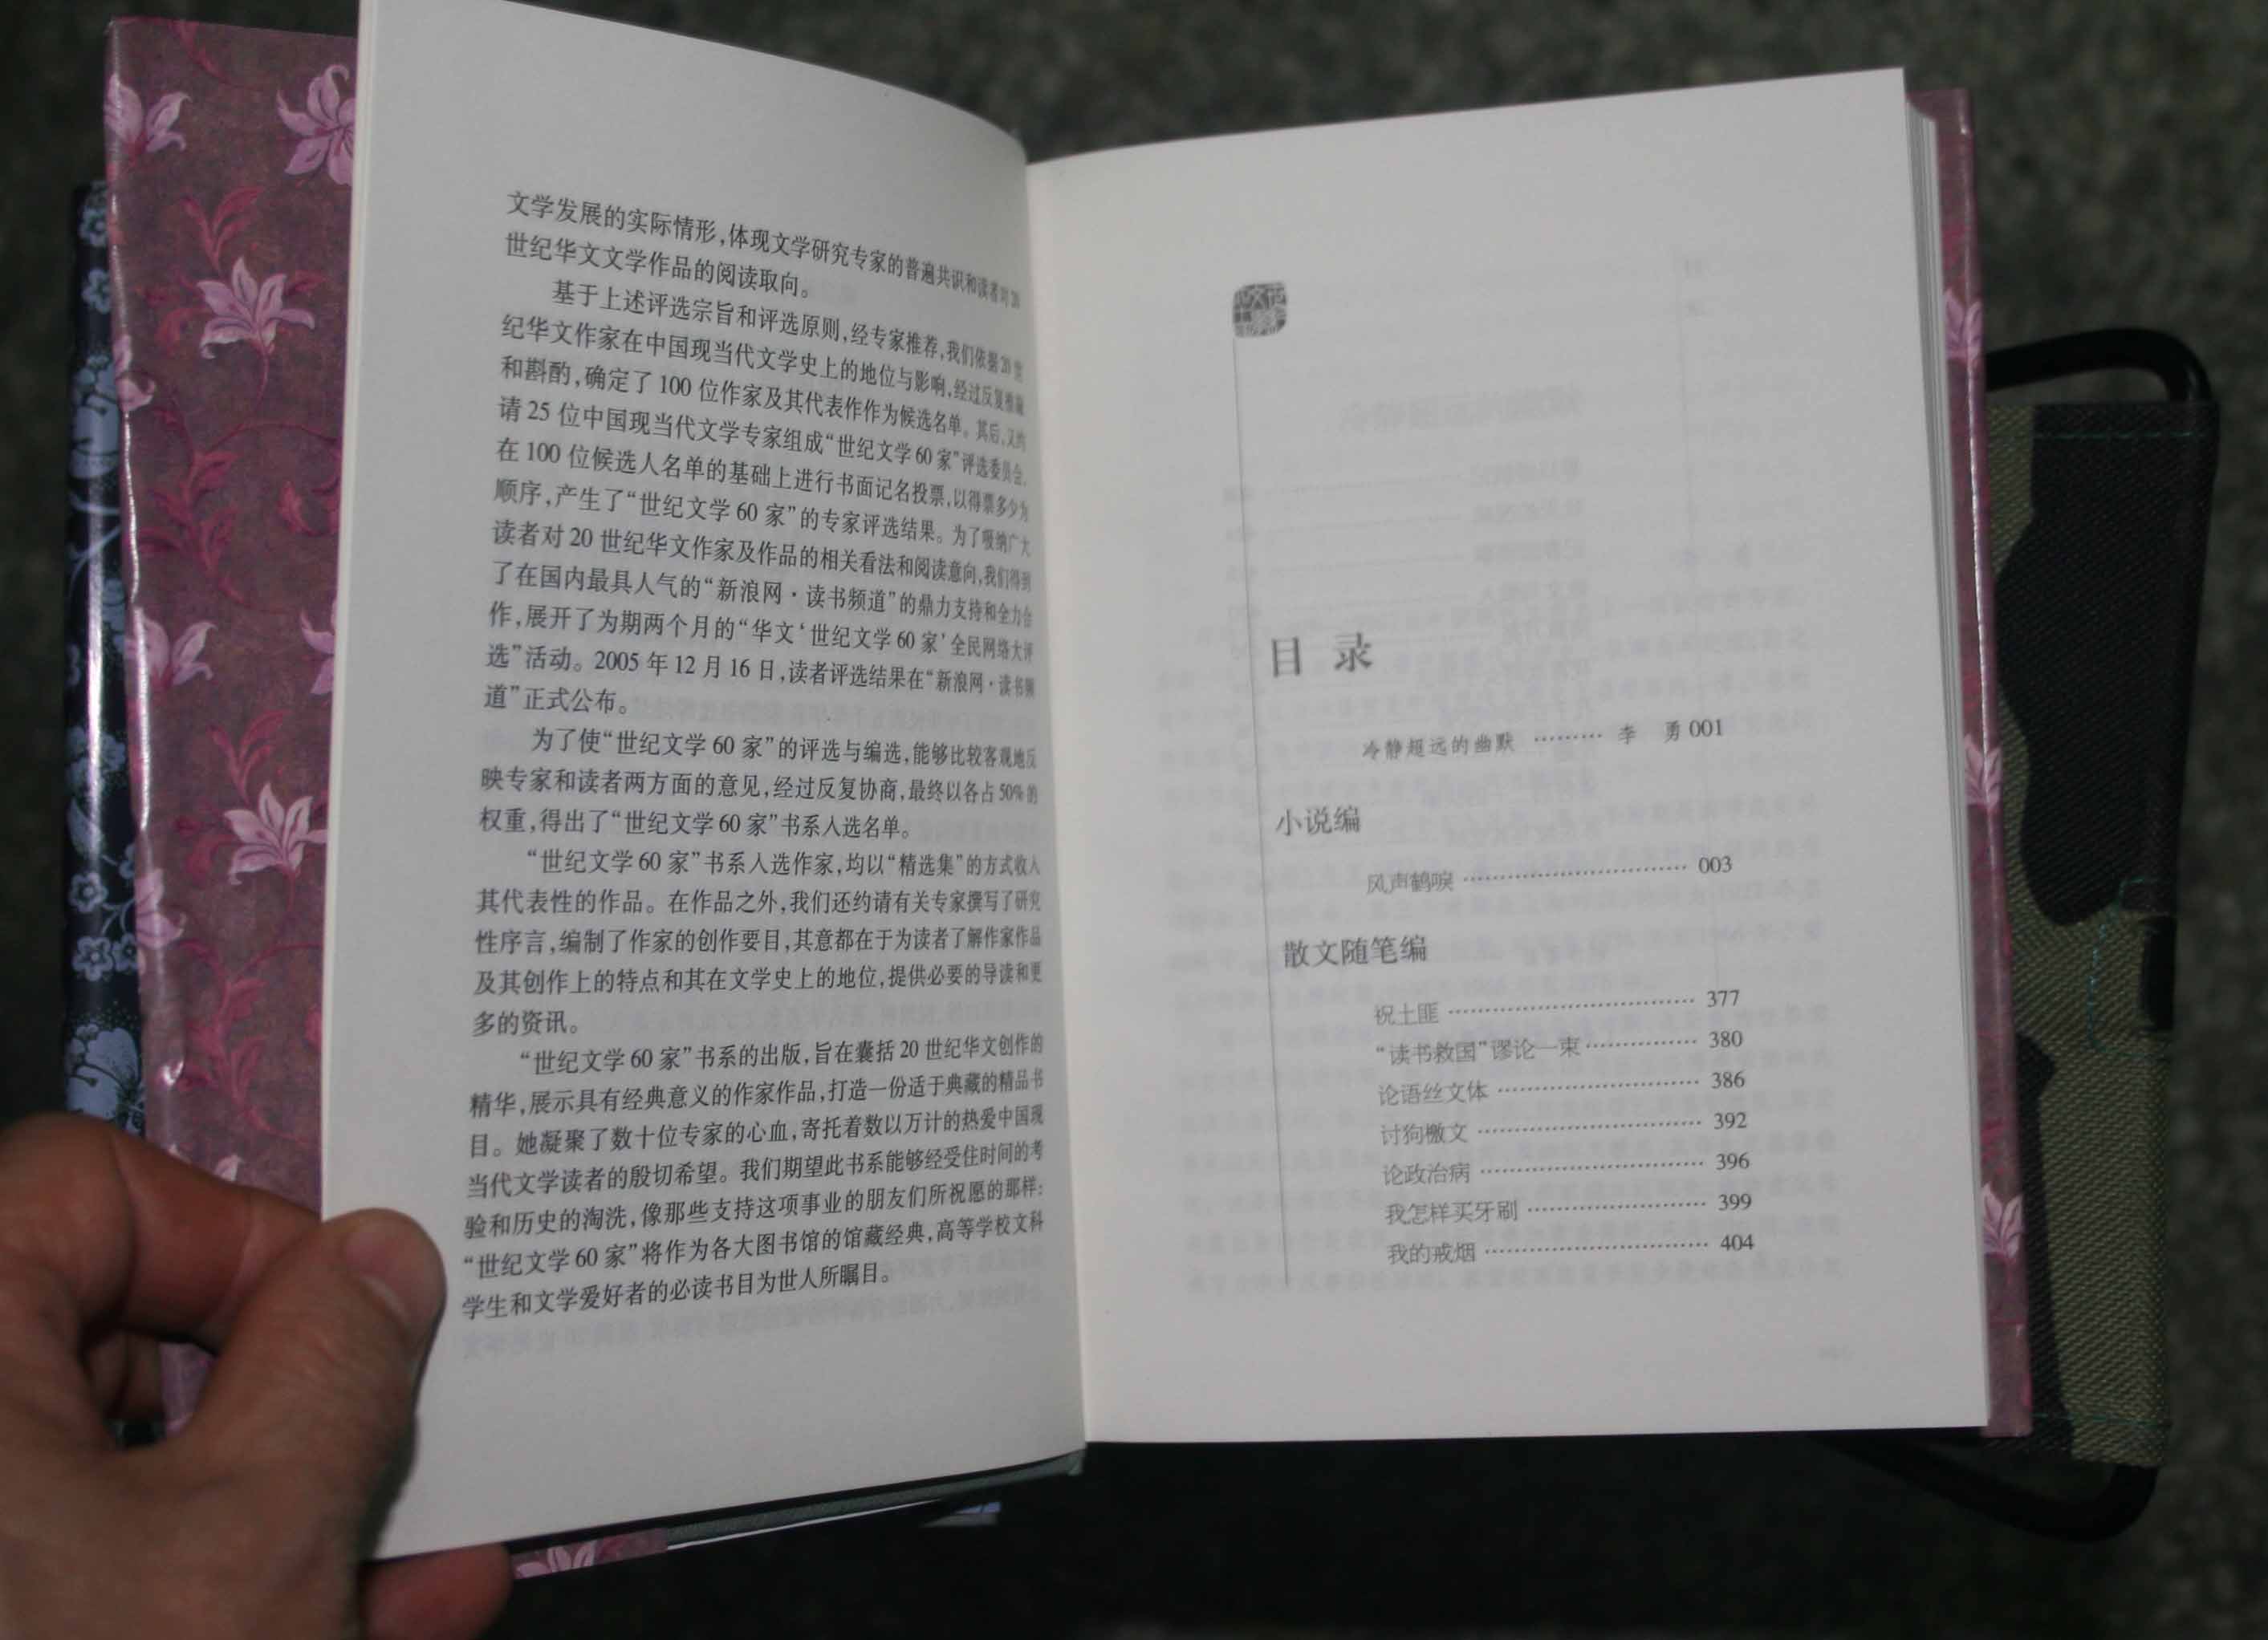 文学发展的实际情形,体现文学研究专家的普遍共识和读者对20
世纪华文文学作品的阅读取向。
基于上述评选宗旨和评选原则,经专家推荐,我们依据20世
纪华文作家在中国现当代文学史上的地位与影响,经过反复推敲
和斟酌,确定了100位作家及其代表作作为候选名单。其后,又约
请25位中国现当代文学专家组成“世纪文学60家”评选委员会,
在100位候选人名单的基础上进行书面记名投票,以得票多少为
顺序,产生了“世纪文学60家”的专家评选结果。为了吸纳广大
读者对20世纪华文作家及作品的相关看法和阅读意向,我们得到
了在国内最具人气的“新浪网·读书频道”的鼎力支持和全力合
作,展开了为期两个月的“华文‘世纪文学60家’全民网络大评
选”活动。2005年12月16日,读者评选结果在“新浪网·读书频
道”正式公布。
为了使“世纪文学60家”的评选与编选,能够比较客观地反
映专家和读者两方面的意见,经过反复协商,最终以各占50%的
权重,得出了“世纪文学60家”书系入选名单。
“世纪文学60家”书系入选作家,均以“精选集”的方式收入
其代表性的作品。在作品之外,我们还约请有关专家撰写了研究
性序言,编制了作家的创作要目,其意都在于为读者了解作家作品
及其创作上的特点和其在文学史上的地位,提供必要的导读和更
多的资讯。
“世纪文学60家”书系的出版,旨在囊括20世纪华文创作的
精华,展示具有经典意义的作家作品,打造一份适于典藏的精品书
目。她凝聚了数十位专家的心血,寄托着数以万计的热爱中国现
当代文学读者的殷切希望。我们期望此书系能够经受住时间的考
验和历史的淘洗,像那些支持这项事业的朋友们所祝愿的那样:
“世纪文学60家”将作为各大图书馆的馆藏经典,高等学校文科
学生和文学爱好者的必读书目为世人所瞩目。
目 录
冷静超远的幽默 ……… 李 勇 001
小说编
风声鹤唳 ………………………… 003
散文随笔编
祝土匪 ………………………… 377
“读书救国”谬论一束 ………… 380
论语丝文体 …………………… 386
讨狗檄文 ……………………… 392
论政治病 ……………………… 396
我怎样买牙刷 ………………… 399
我的戒烟 ……………………… 404